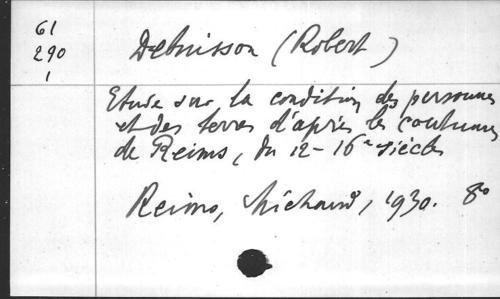 61
290
1
Debuisson (Robert)
Etude sur la condition des personnes
et des terres d'après les coutumes
de Reims, du 12-16e siècles
Reims, Michaud, 1930. 8o